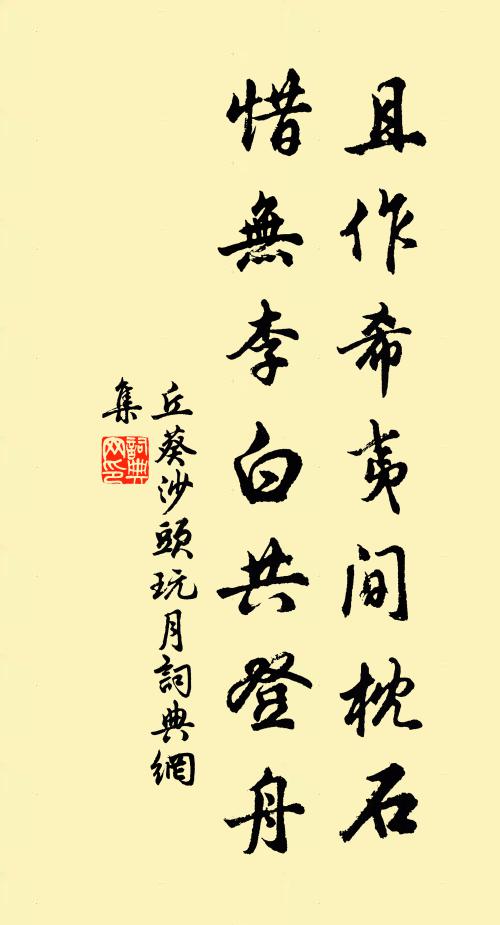 且作希夷閒枕石
惜無李白共登舟
丘葵沙頭玩月詞典網
集
詞典網印